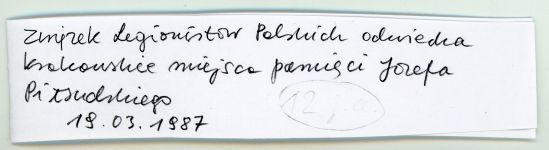 Związek Legionistów Polskich odwiedza
krakowskie miejsca pamięci Józefa
Piłsudskiego
19.03.1987